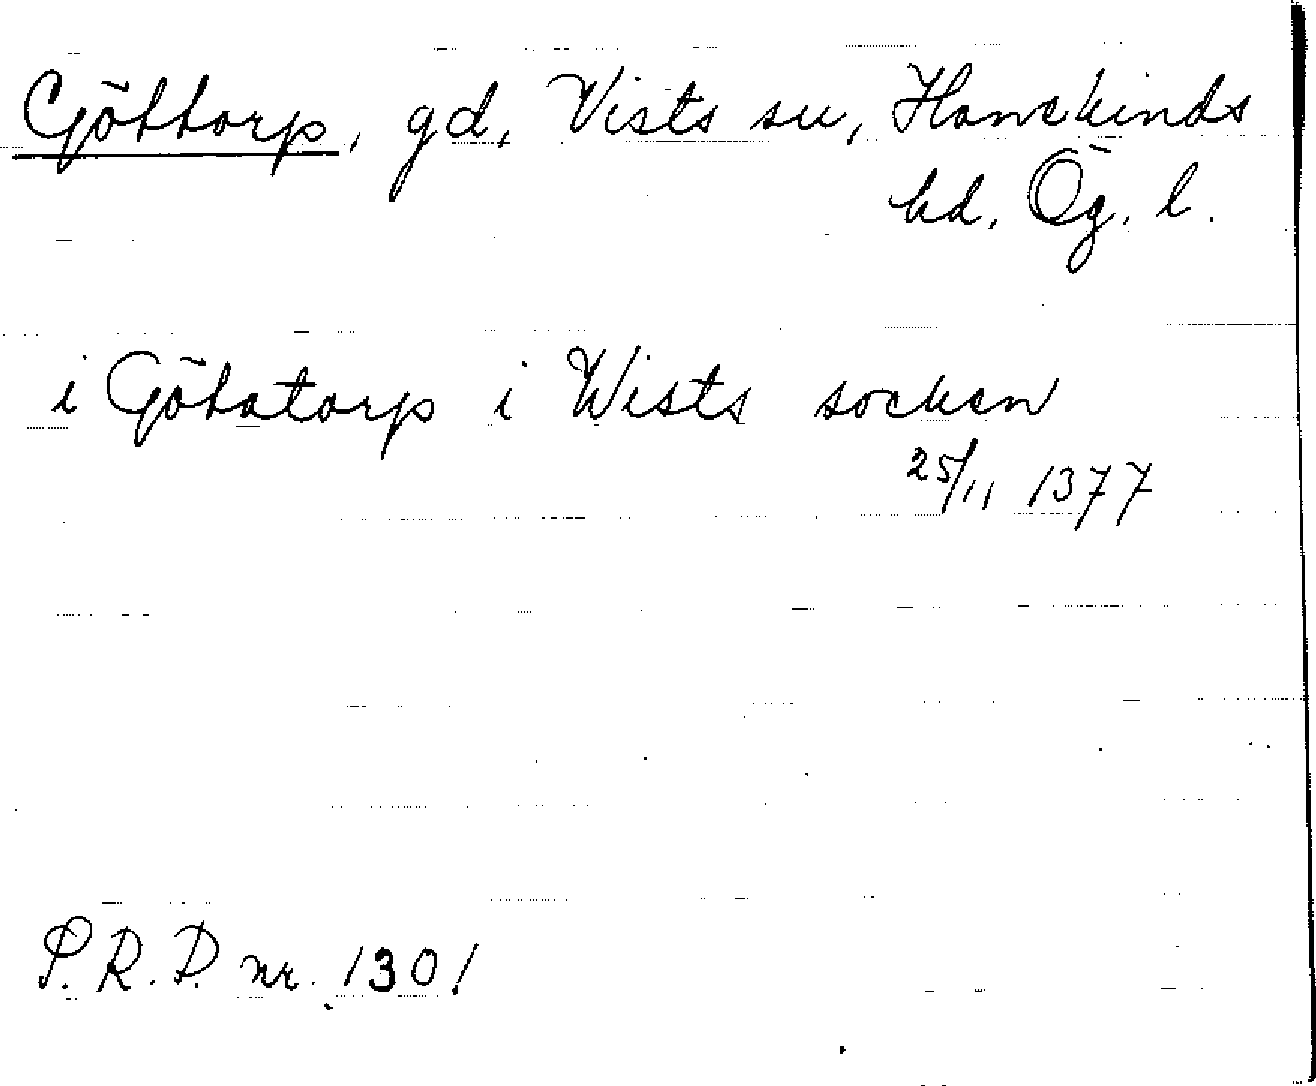 Göttorp, gd, Vists sn, Hanekinds
hd. Ög. l.
i Götatorp i Wists socken
25/11 1377
P.R.P. nr. 1301